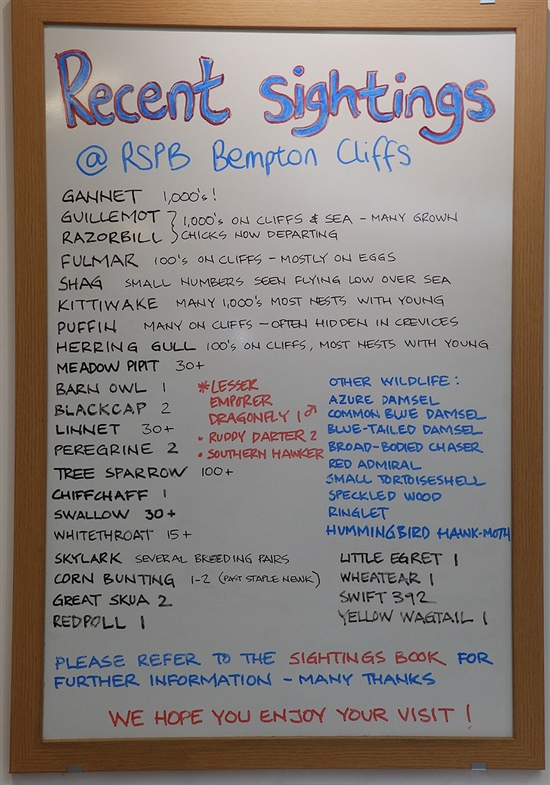 Recent Sightings
@ RSPB Bempton Cliffs
GANNET 1,000's!
GUILLEMOT
RAZORBILL
} 1,000's ON CLIFFS & SEA - MANY GROWN
CHICKS NOW DEPARTING
FULMAR 100's ON CLIFFS - MOSTLY ON EGGS
SHAG SMALL NUMBERS SEEN FLYING LOW OVER SEA
KITTIWAKE MANY 1,000's MOST NESTS WITH YOUNG
PUFFIN MANY ON CLIFFS - OFTEN HIDDEN IN CREVICES
HERRING GULL 100's ON CLIFFS, MOST NESTS WITH YOUNG
MEADOW PIPIT 30+
BARN OWL 1
BLACKCAP 2
LINNET 30+
PEREGRINE 2
TREE SPARROW 100+
CHIFFCHAFF 1
SWALLOW 30+
WHITETHROAT 15+
*LESSER
EMPORER
DRAGONFLY 1♂
• RUDDY DARTER 2
• SOUTHERN HAWKER
OTHER WILDLIFE:
AZURE DAMSEL
COMMON BLUE DAMSEL
BLUE-TAILED DAMSEL
BROAD-BODIED CHASER
RED ADMIRAL
SMALL TORTOISESHELL
SPECKLED WOOD
RINGLET
HUMMINGBIRD HAWK-MOTH
SKYLARK SEVERAL BREEDING PAIRS
CORN BUNTING 1-2 (PAST STAPLE NEWK)
GREAT SKUA 2
REDPOLL 1
LITTLE EGRET 1
WHEATEAR 1
SWIFT 392
YELLOW WAGTAIL 1
PLEASE REFER TO THE SIGHTINGS BOOK FOR
FURTHER INFORMATION - MANY THANKS
WE HOPE YOU ENJOY YOUR VISIT!